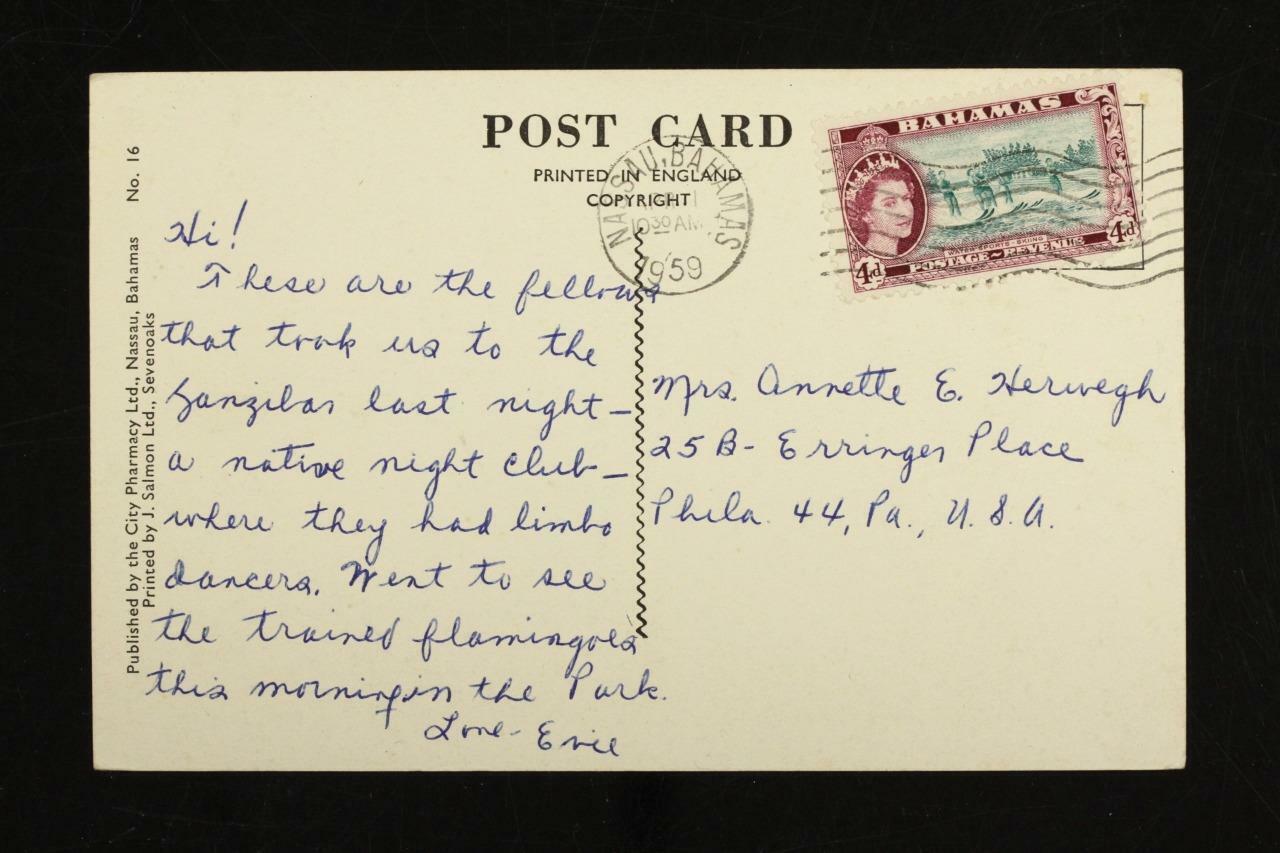 POST CARD
PRINTED IN ENGLAND
COPYRIGHT
NASSAU, BAHAMAS
1030 AM
1959
BAHAMAS
WATER SPORTS - SKIING
POSTAGE ~ REVENUE
4d
4d
No. 16
Published by the City Pharmacy Ltd., Nassau, Bahamas
Printed by J. Salmon Ltd., Sevenoaks
Hi!
These are the fellows
that took us to the
Zanzibar last night—
a native night club—
where they had limbo
dancers. Went to see
the trained flamingoes
this morning in the Park.
Love - Evie
Mrs. Annette E. Herwegh
25 B - Erringer Place
Phila. 44, Pa., U.S.A.